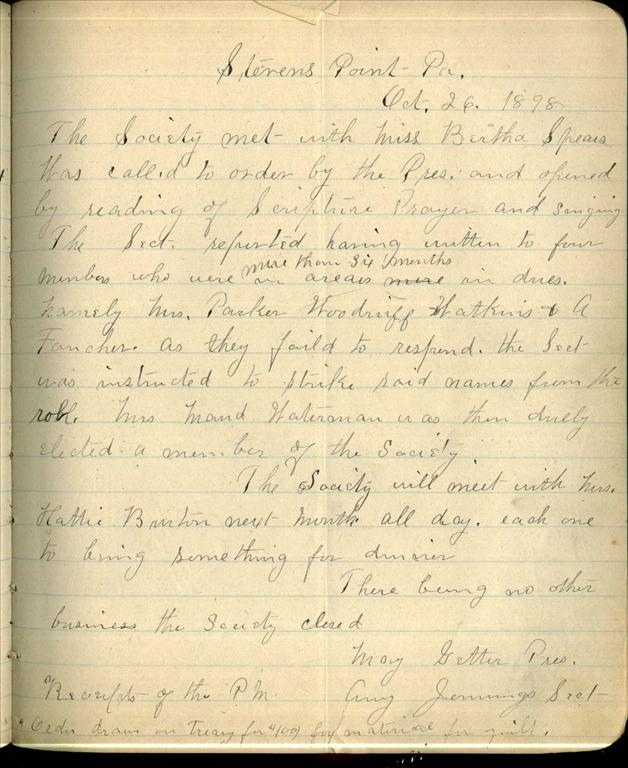 Stevens Point - Pa.
Oct. 26. 1898
The Society met - with Miss Bertha Spears
Was called to order by the Pres. and opened
by reading of Scripture Prayer and singing
The Sect. reported having written to four
members who were more than six months in arears in dues.
namely Mrs. Parker Woodruff Watkins & A
Fancher. as they faild to respond. the Sect
was instructed to strike said names from the
roll. Mrs Maud Waterman was then duelly
elected a member of the Society
The Society will meet with Mrs.
Hattie Burton next month all day. each one
to bring something for dinner
There being no other
business the Society closed
May Getter Pres.
Receipts of the P.M. Amy Jennings Sect -
Order drawn on Treasy for for material for quilt.